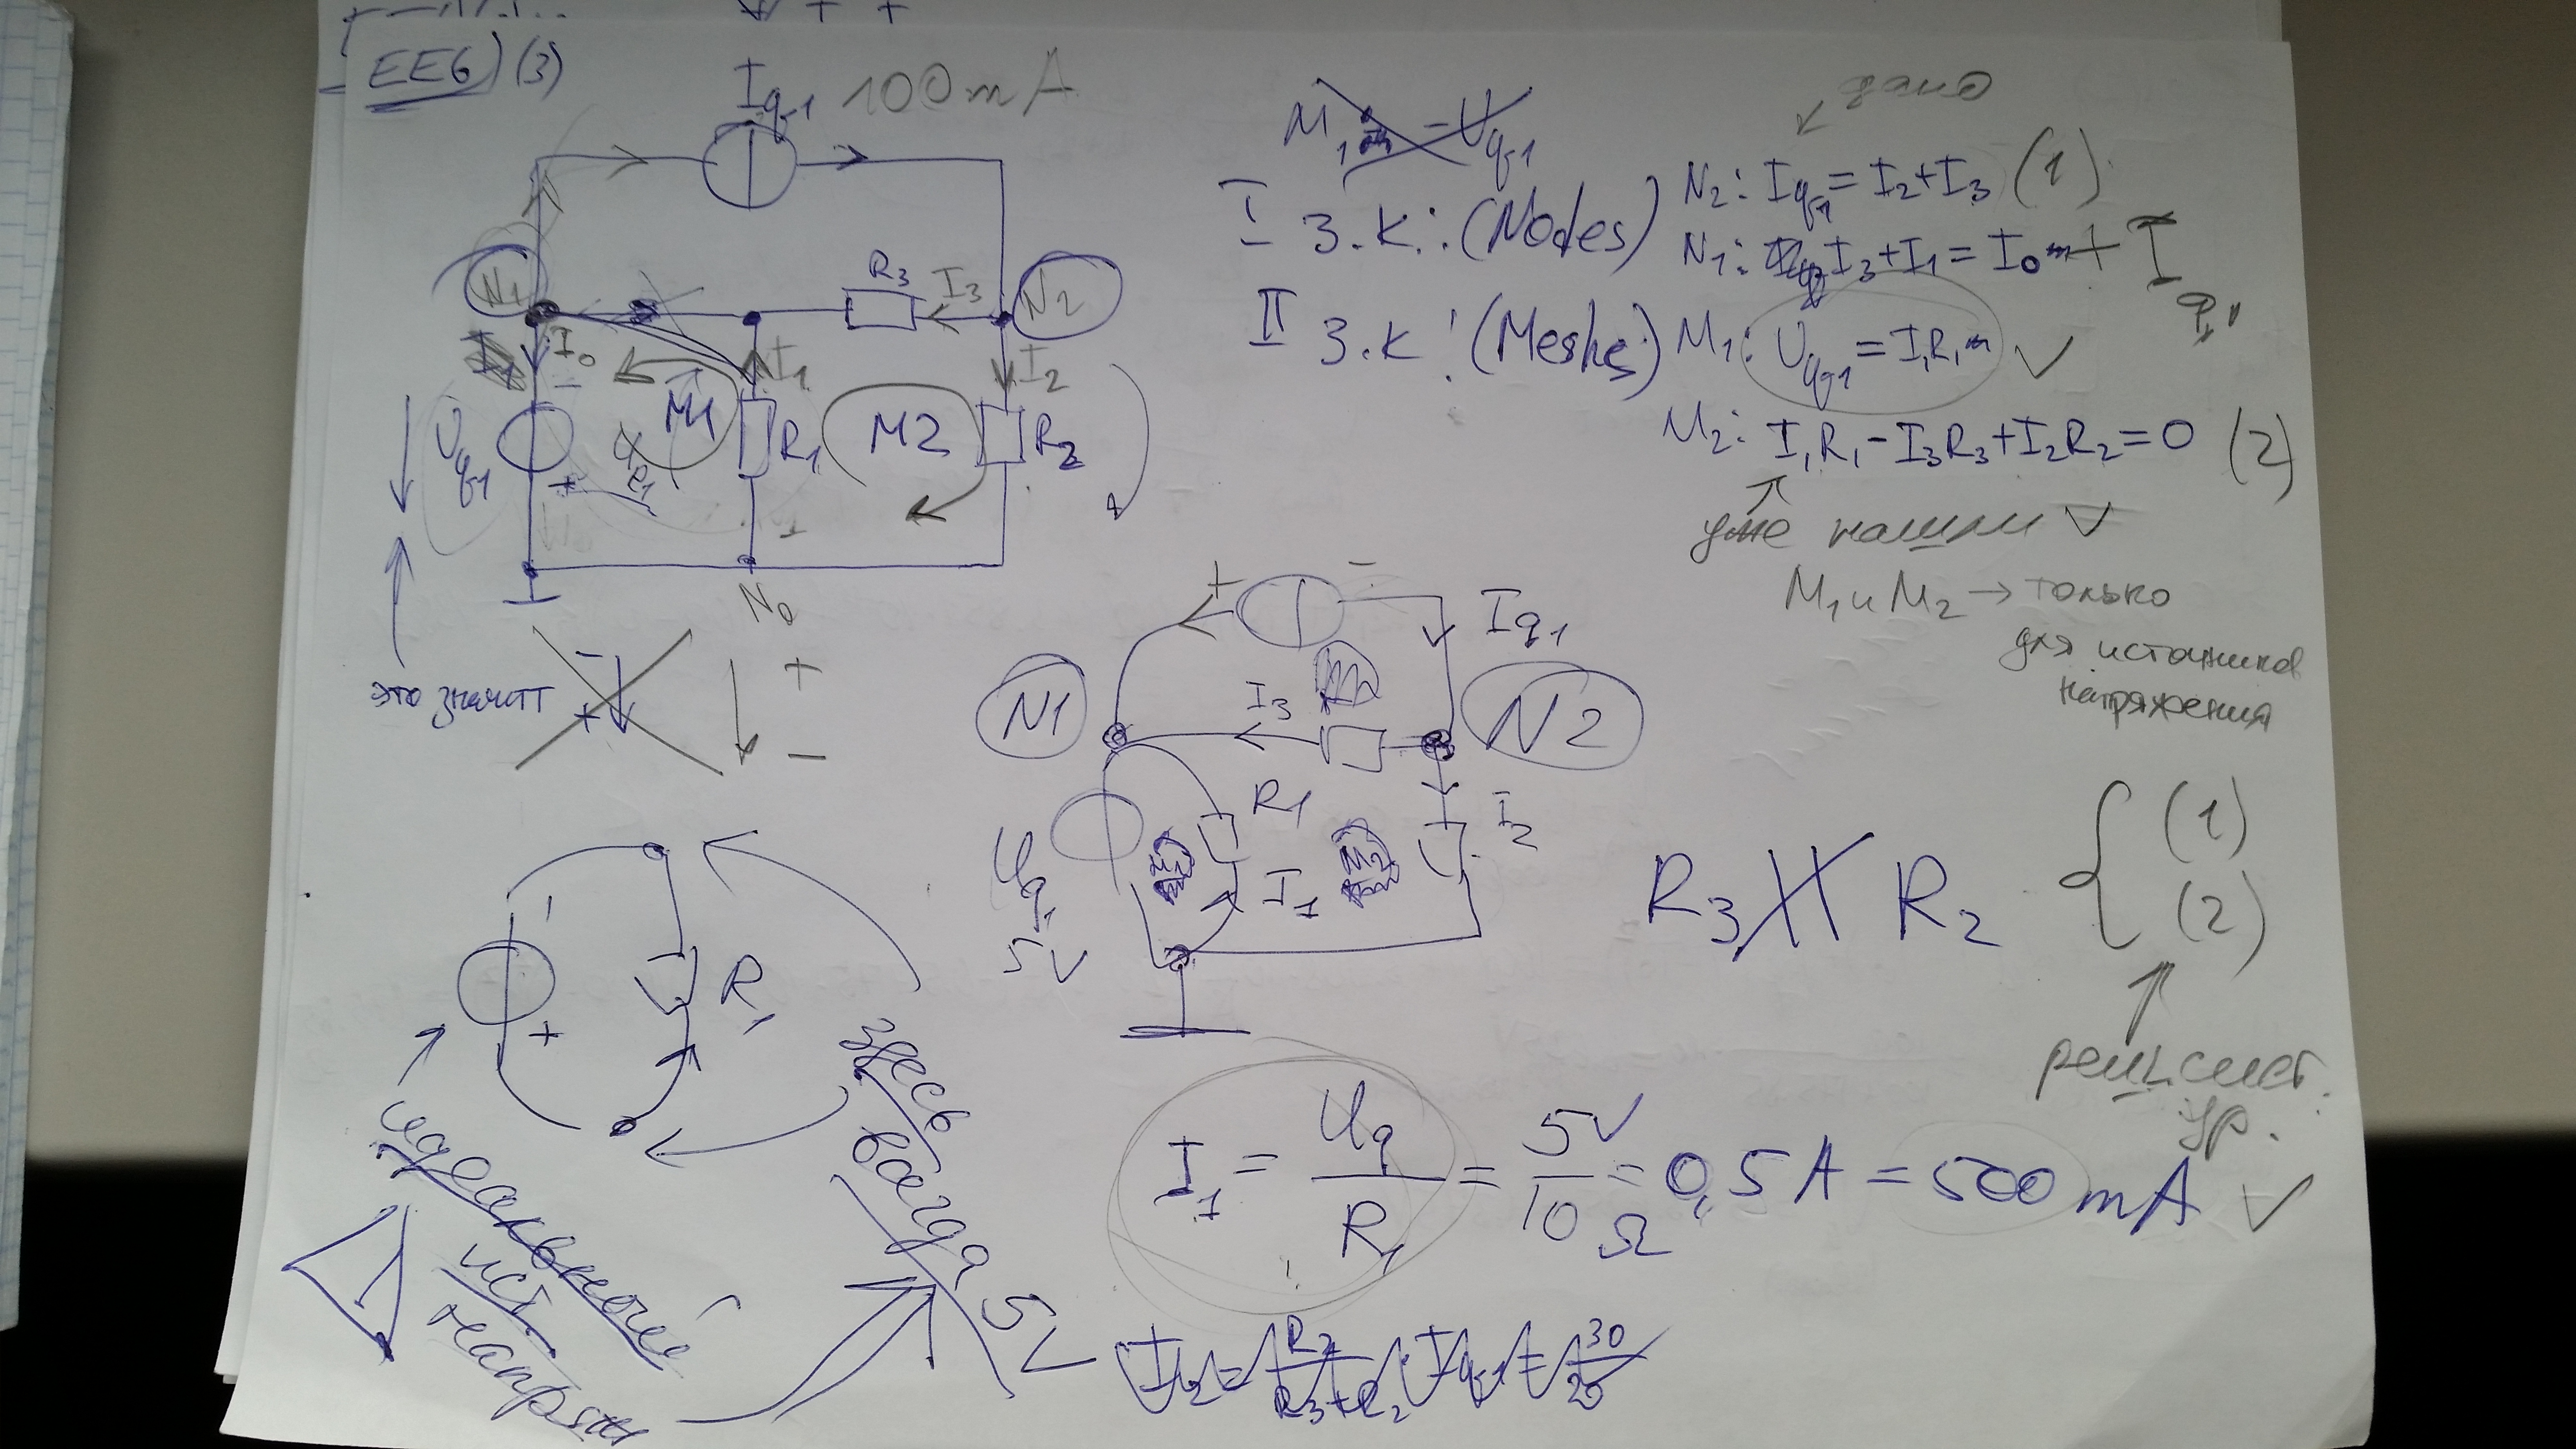 EE6) (3)
Iq1 100mA
N1
R3
I3
N2
I0
I1
I2
Uq1
M1
R1
M2
R2
N0
это значит
- +
+ -
M1 = Uq1
I З.К.: (Nodes)
дано
N2: Iq1 = I2+I3 (1)
N1: I3+I1 = I0 + Iq1
II З.К: (Meshes)
M1: Uq1 = I1R1
M2: I1R1-I3R3+I2R2=0 (2)
уже нашли
M1 и M2 → только
для источников
напряжения
+ -
Iq1
N1
I3
N2
R1
I2
Uq1
5V
M1
M2
I1
R3 ∦ R2
{ (1)
(2)
реш. сист.
ур.
-
+
R1
идеальный
ист.
напряж
здесь
всегда
5V
I1 = Uq/R1 = 5V/10Ω = 0,5A = 500mA
I2 = R3/(R3+R2) · Iq1 = 30/20